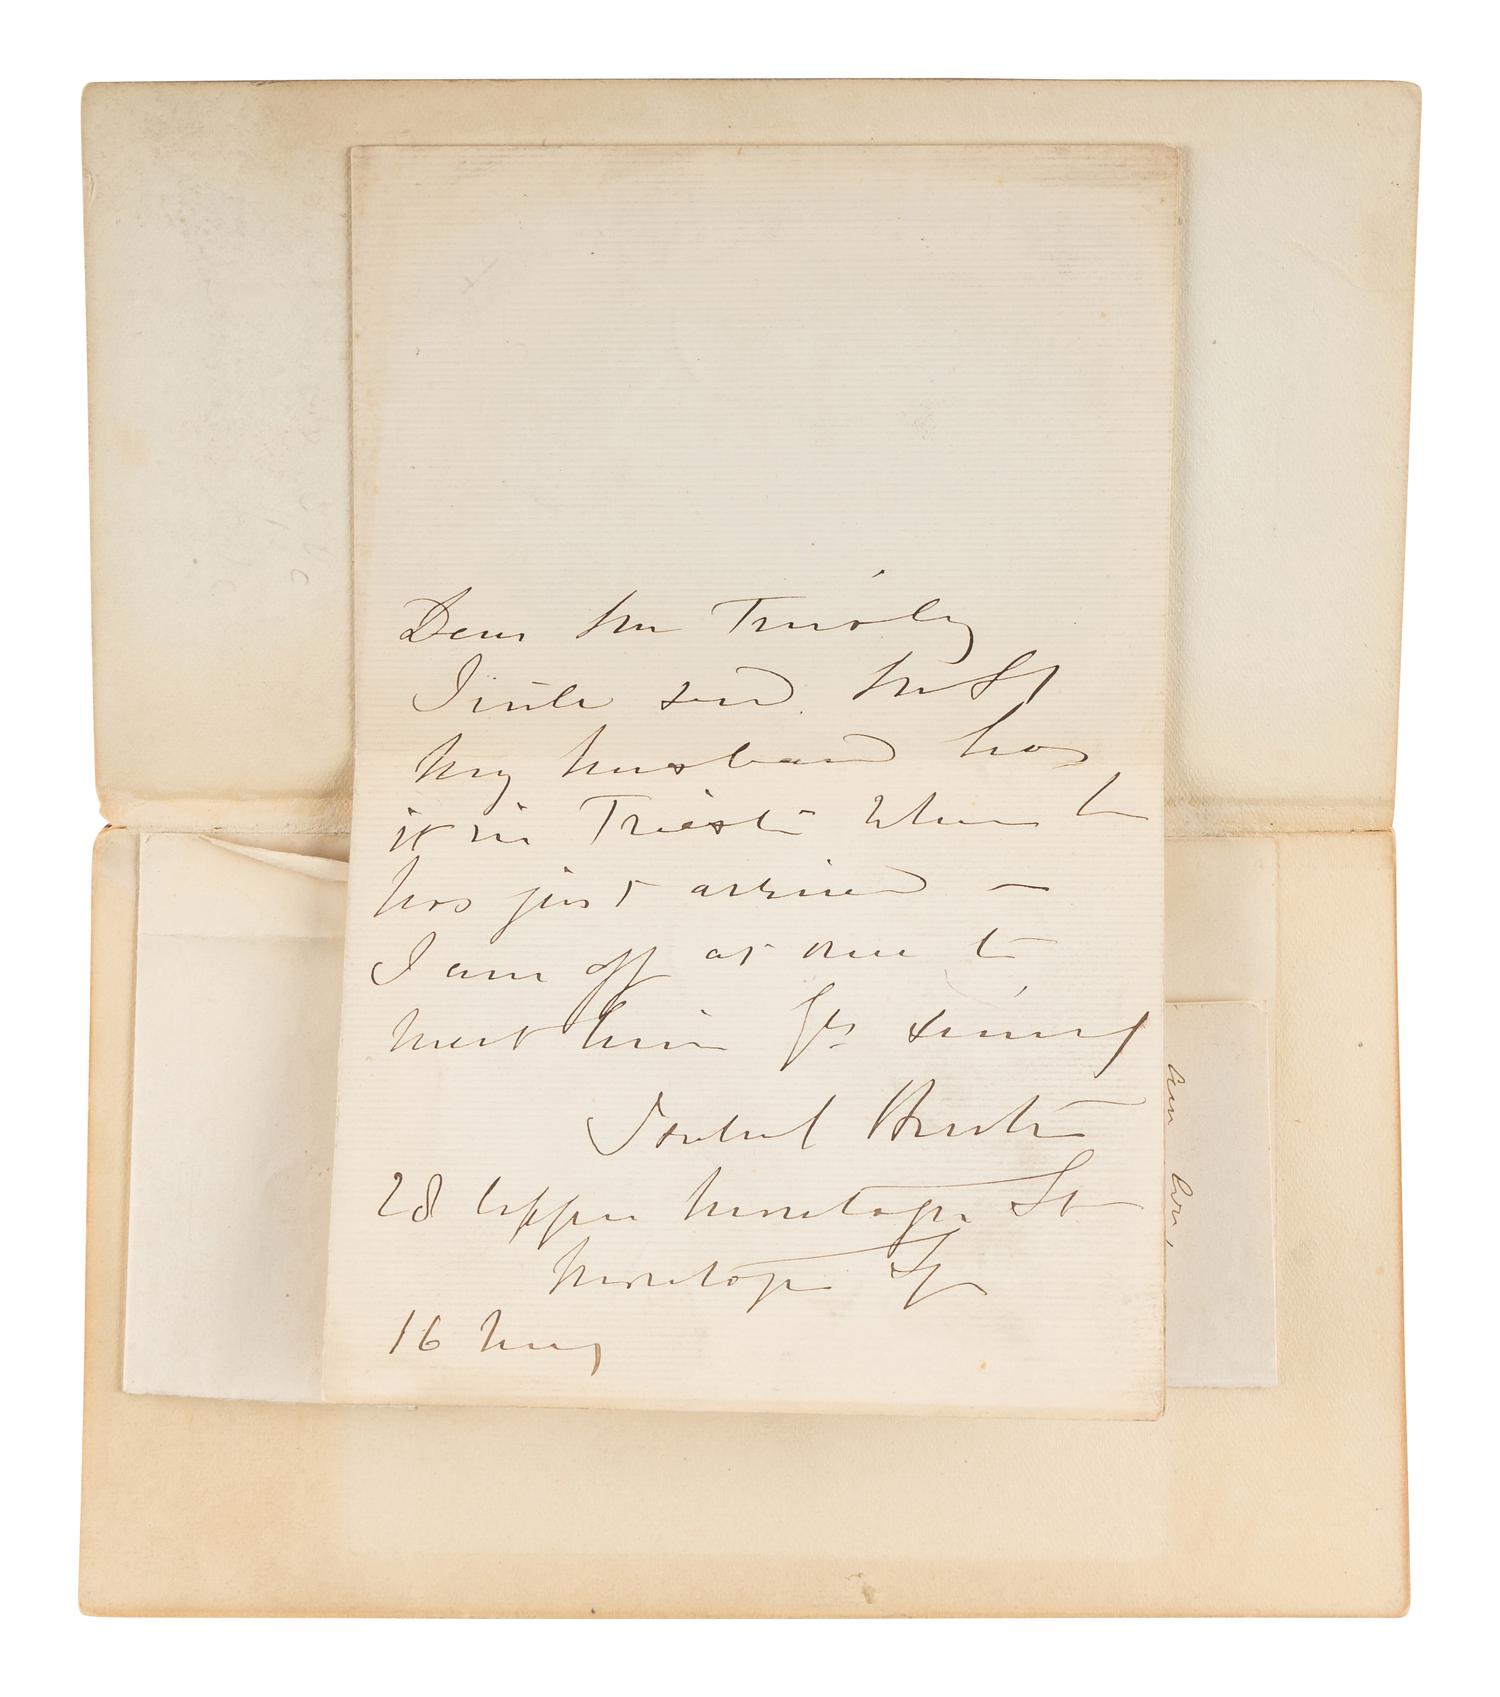 Dear Mr Tinsley
I will send Mr St
My husband has
it in Trieste where he
has just arrived —
I am off at once to
meet him Yrs sincly
Isabel Burton
28 Upper Montagu St
Montagu Sq
16 May